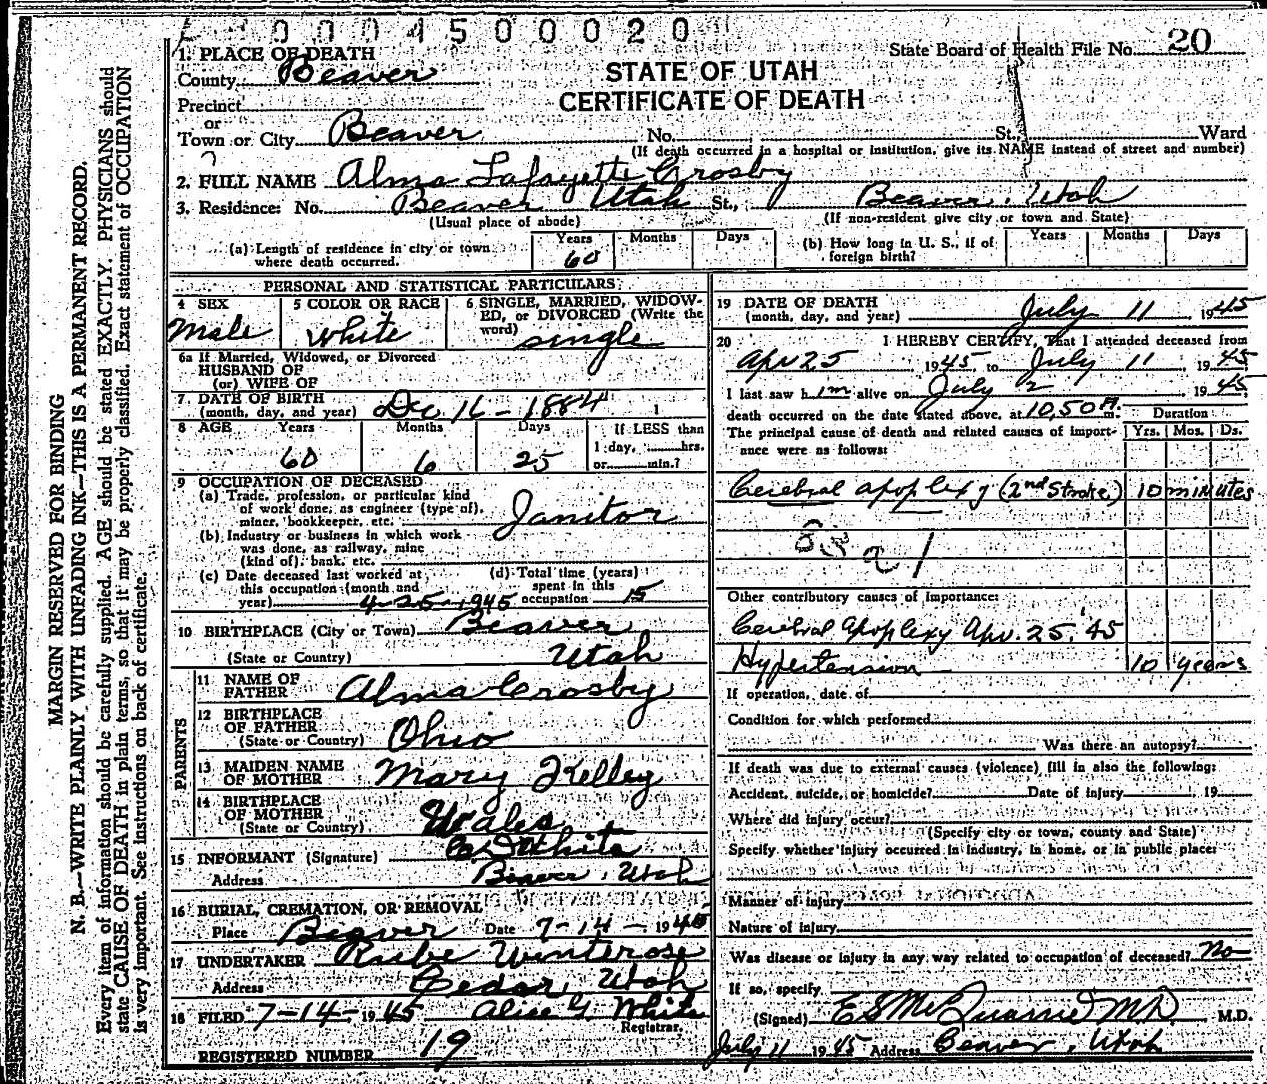 0 0 4 5 0 0 0 2 0
1. PLACE OF DEATH
State Board of Health File No. 20
County Beaver
STATE OF UTAH
CERTIFICATE OF DEATH
Precinct
or
Town or City Beaver No. St., Ward
(If death occurred in a hospital or institution, give its NAME instead of street and number)
2. FULL NAME Alma Lafayette Crosby
3. Residence: No. Beaver Utah St., Beaver, Utah
(Usual place of abode) (If non-resident give city or town and State)
(a) Length of residence in city or town where death occurred. Years 60 Months Days
(b) How long in U. S., if of foreign birth? Years Months Days
PERSONAL AND STATISTICAL PARTICULARS
4 SEX Male
5 COLOR OR RACE White
6 SINGLE, MARRIED, WIDOWED, or DIVORCED (Write the word) single
6a If Married, Widowed, or Divorced
HUSBAND OF
(or) WIFE OF
7 DATE OF BIRTH
(month, day, and year) Dec 16 - 1884
8 AGE Years 60 Months 6 Days 25 If LESS than
1 day, hrs.
or min.?
9 OCCUPATION OF DECEASED
(a) Trade, profession, or particular kind
of work done, as engineer (type of),
miner, bookkeeper, etc. Janitor
(b) Industry or business in which work
was done, as railway, mine
(kind of), bank, etc.
(c) Date deceased last worked at
this occupation (month and
year) 4-25-1945
(d) Total time (years)
spent in this
occupation 15
10 BIRTHPLACE (City or Town) Beaver
(State or Country) Utah
PARENTS
11 NAME OF
FATHER Alma Crosby
12 BIRTHPLACE
OF FATHER
(State or Country) Ohio
13 MAIDEN NAME
OF MOTHER Mary Kelley
14 BIRTHPLACE
OF MOTHER
(State or Country) Wales
15 INFORMANT (Signature) White
Address Beaver, Utah
16 BURIAL, CREMATION, OR REMOVAL
Place Beaver Date 7-14-1945
17 UNDERTAKER Winterose
Address Cedar, Utah
18 FILED 7-14-1945 Alice G. White
Registrar.
REGISTERED NUMBER 19
19 DATE OF DEATH
(month, day, and year) July 11 1945
20 I HEREBY CERTIFY, That I attended deceased from
Apr 25 1945, to July 11, 1945
I last saw him alive on July 2 1945
death occurred on the date stated above, at 10.50 A. m.
The principal cause of death and related causes of importance were as follows:
Duration
Yrs. Mos. Ds.
Cerebral apoplexy (2nd Stroke) 10 minutes
Other contributory causes of importance:
Cerebral Apoplexy Apr. 25, '45
Hypertension 10 years
If operation, date of
Condition for which performed
Was there an autopsy?
If death was due to external causes (violence) fill in also the following:
Accident, suicide, or homicide? Date of injury , 19
Where did injury occur?
(Specify city or town, county and State)
Specify whether injury occurred in industry, in home, or in public place:
Manner of injury
Nature of injury
Was disease or injury in any way related to occupation of deceased? No
If so, specify
(Signed) M.D. M.D.
July 11 1945 Address Beaver, Utah
MARGIN RESERVED FOR BINDING
N. B.—WRITE PLAINLY WITH UNFADING INK—THIS IS A PERMANENT RECORD.
Every item of information should be carefully supplied. AGE should be stated EXACTLY. PHYSICIANS should
state CAUSE OF DEATH in plain terms, so that it may be properly classified. Exact statement of OCCUPATION
is very important. See instructions on back of certificate.